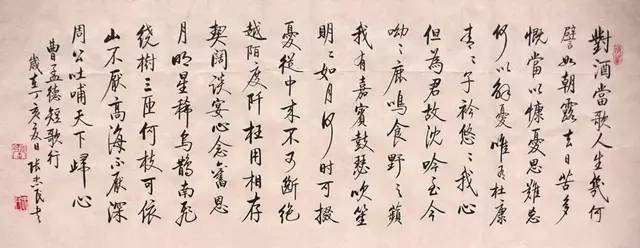 對酒當歌人生幾何
譬如朝露去日苦多
慨當以慷憂思難忘
何以解憂唯有杜康
青〻子衿悠〻我心
但為君故沈吟至今
呦〻鹿鳴食野之蘋
我有嘉賓鼓瑟吹笙
明〻如月何時可掇
憂從中來不可斷絕
越陌度阡枉用相存
契闊談宴心念舊恩
月明星稀烏鵲南飛
繞樹三匝何枝可依
山不厭高海不厭深
周公吐哺天下歸心
曹孟德短歌行
歲在丁亥夏日張